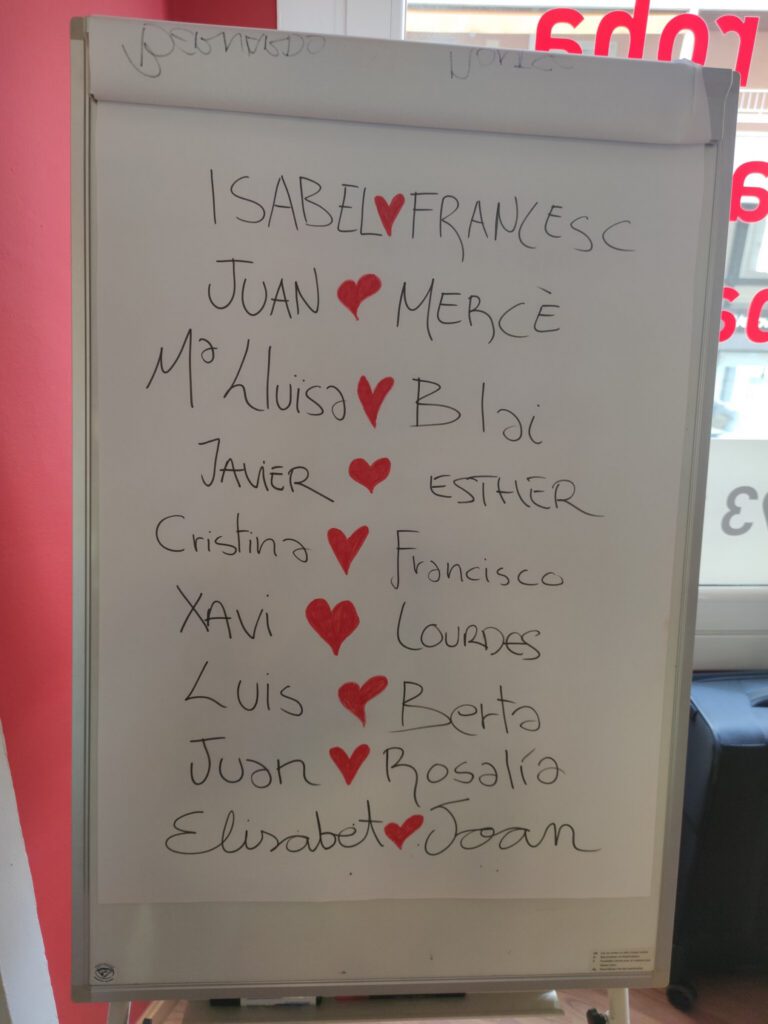 BERNARDO
ISABEL ♥ FRANCESC
JUAN ♥ MERCÈ
Mª Lluisa ♥ Blai
JAVIER ♥ ESTHER
Cristina ♥ Francisco
XAVI ♥ LOURDES
Luis ♥ Berta
Juan ♥ Rosalía
Elisabet ♥ Joan